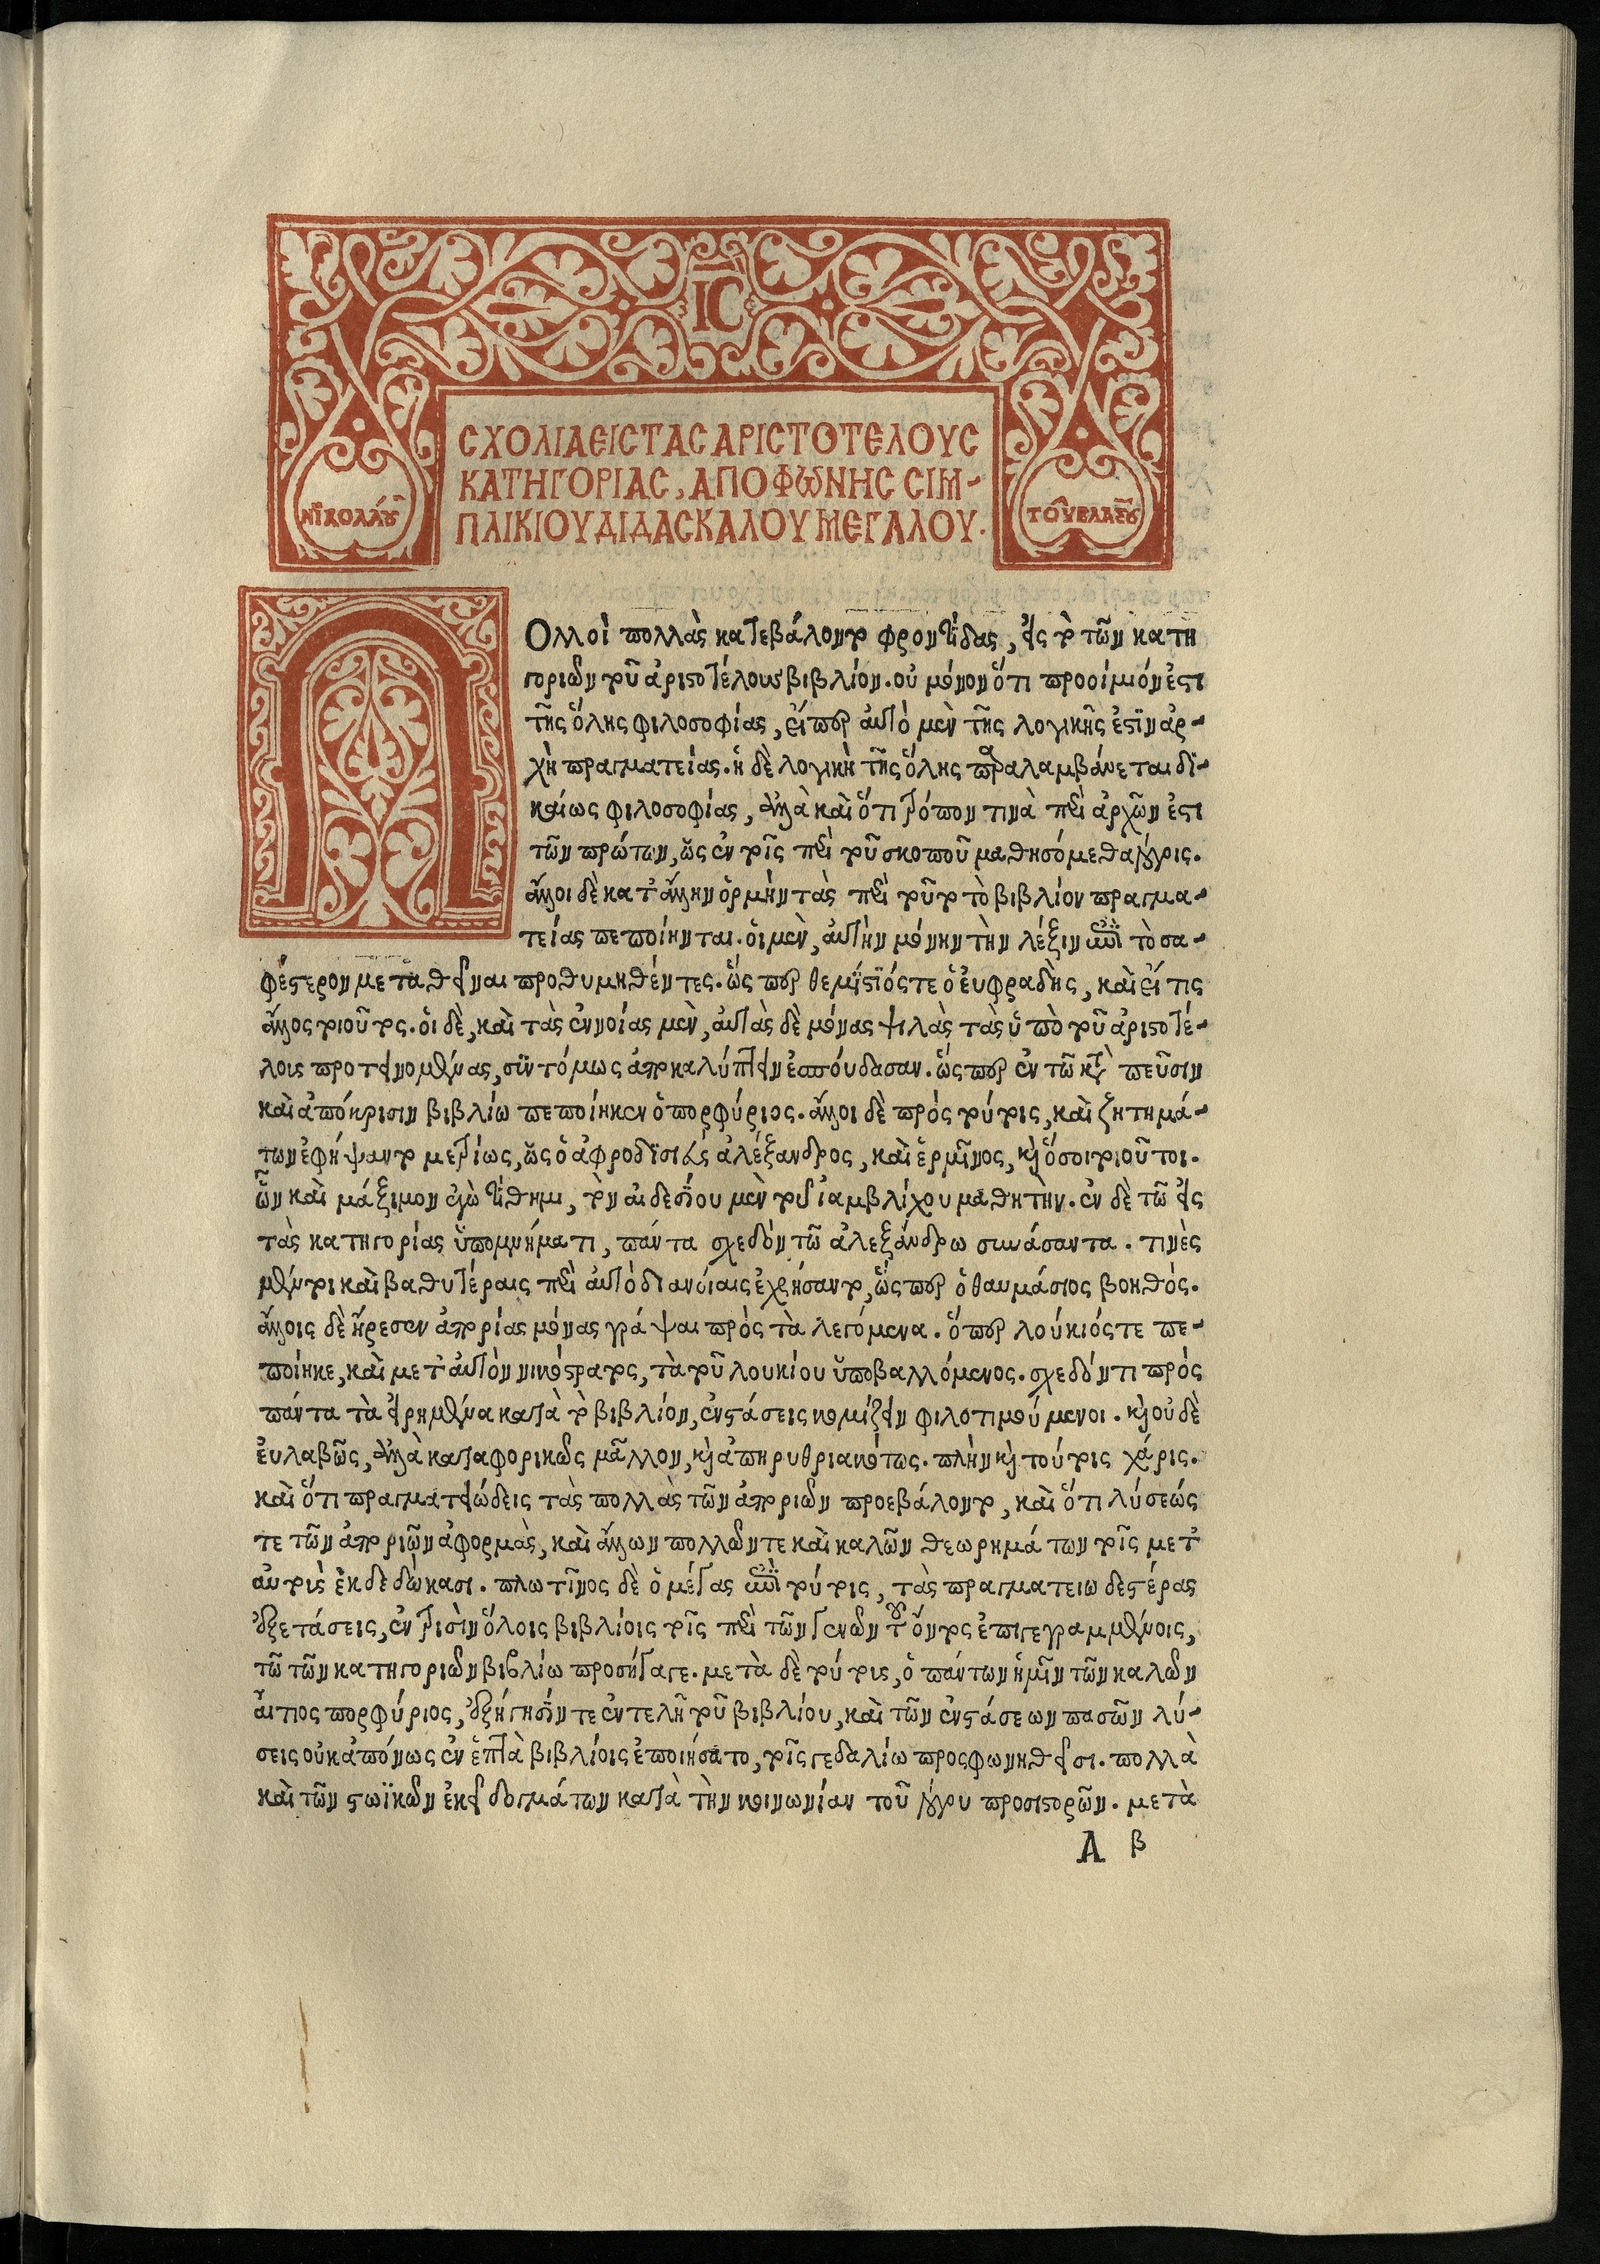 ΙϹ
ϹΧΟΛΙΑ ΕΙϹ ΤΑϹ ΑΡΙϹΤΟΤΕΛΟΥϹ
ΚΑΤΗΓΟΡΙΑϹ, ΑΠΟ ΦΩΝΗϹ ϹΙΜ-
ΠΛΙΚΙΟΥ ΔΙΔΑϹΚΑΛΟΥ ΜΕΓΑΛΟΥ.
ΝΙΚΟΛΑΟΥ
ΤΟΥ ΒΛΑϹΤΟΥ
Πολλοὶ πολλὰς κατεβάλοντο φροντίδας, εἰς τὸ τῶν κατη
γοριῶν τοῦ ἀριστοτέλους βιβλίον. οὐ μόνον ὅτι προοίμιόν ἐστι
τῆς ὅλης φιλοσοφίας, εἴπερ αὐτὸ μὲν τῆς λογικῆς ἐστϊν ἀρ-
χὴ πραγματείας. ἡ δὲ λογικὴ τῆς ὅλης προλαμβάνεται δϊ-
καίως φιλοσοφίας, ἀλλὰ καὶ ὅτι τρόπον τινὰ περὶ ἀρχῶν ἐστι
τῶν πρώτων, ὥς ἐν τοῖς περὶ τοῦ σκοποῦ μαθησόμεθα λόγοις.
ἄλλοι δὲ κατ᾽ ἄλλην ὁρμὴν τὰς περὶ τοῦτο τὸ βιβλίον πραγμα-
τείας πεποίηνται. οἱ μὲν, αὐτὴν μόνην τὴν λέξιν ἐπὶ τὸ σα-
φέστερον μεταθεῖναι προθυμηθέντες. ὥς περ θεμΐστϊός τε ὁ ἐυφραδὴς, καὶ εἴ τις
ἄλλος τοιοῦτος. ὁι δὲ, καὶ τὰς ἐννοίας μὲν, αὐτὰς δὲ μόνας ψιλὰς τὰς ὑπὸ τοῦ ἀριστοτέ-
λοις προτεινομένας, σϋντόμως ἀποκαλύπτειν ἐσπούδασαν. ὥς περ ἐν τῶ κατὰ πεῦσιν
καὶ ἀπόκρισιν βιβλίω πεποίηκεν ὁ πορφύριος. ἄλλοι δὲ πρὸς τούτοις, καὶ ζητημά-
των ἐφήψαντο μετρίως, ὥς ὁ ἀφροδϊσιεὺς ἀλέξανδρος, καὶ ἑρμῖνος, καὶ ὅσοι τοιοῦτοι.
ὧν καὶ μάξιμον ἐγὼ τίθημι, τὸν αἰδεσίου μὲν τοῦ ἰαμβλίχου μαθητὴν. ἐν δὲ τῶ εἰς
τὰς κατηγορίας ὑπομνήματι, πάντα σχεδὸν τῶ ἀλεξάνδρω συνάσαντα. τινὲς
μέντοι καὶ βαθυτέραις περὶ αὐτὸ διανοίαις ἐχρήσαντο, ὥς περ ὁ θαυμάσιος βοηθὸς.
ἄλλοις δὲ ἤρεσεν ἀπορίας μόνας γράψαι πρὸς τὰ λεγόμενα. ὅπερ λούκιός τε πε-
ποίηκε, καὶ μετ᾽ αὐτὸν νικόστρατος, τὰ τοῦ λουκίου ὑποβαλλόμενος. σχεδόν τι πρὸς
πάντα τὰ εἰρημένα κατὰ τὸ βιβλίον, ἐνστάσεις κομίζειν φιλοτιμούμενοι. καὶ οὐδὲ
ἐυλαβῶς, ἀλλὰ καταφορικῶς μᾶλλον, καὶ ἀπηρυθριακότως. πλὴν καὶ τούτοις χάρις.
καὶ ὅτι πραγματειώδεις τὰς πολλὰς τῶν ἀποριῶν προεβάλοντο, καὶ ὅτι λύσεώς
τε τῶν ἀποριῶν ἀφορμὰς, καὶ ἄλλων πολλῶν τε καὶ καλῶν θεωρημάτων τοῖς μετ᾽
αὐτοὺς ἐκδεδώκασι. πλωτῖνος δὲ ὁ μέγας ἐπὶ τούτοις, τὰς πραγματειωδεστέρας
ἐξετάσεις, ἐν τρισὶν ὅλοις βιβλίοις τοῖς περὶ τῶν γενῶν τοῦ ὄντος ἐπιγεγραμμένοις,
τῶ τῶν κατηγοριῶν βιβλίω προσήγαγε. μετὰ δὲ τούτοις, ὁ πάντων ἡμῖν τῶν καλῶν
αἴτιος πορφύριος, ἐξήγησίν τε ἐντελῆ τοῦ βιβλίου, καὶ τῶν ἐνστάσεων πασῶν λύ-
σεις οὐκ ἀπόνως ἐν ἑπτὰ βιβλίοις ἐποιήσατο, τοῖς γεδαλίω προσφωνηθεῖσι. πολλὰ
καὶ τῶν στωϊκῶν ἐκεῖ δογμάτων κατὰ τὴν κοινωνίαν τοῦ λόγου προσιστορῶν. μετὰ
Α β